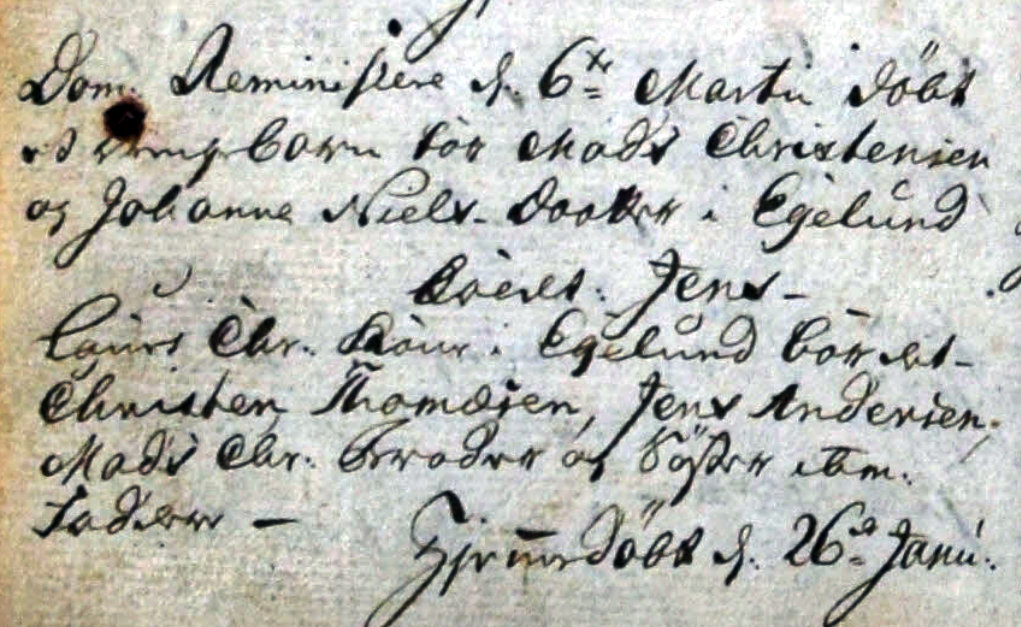 Dom. Reminiscere d. 6te Martii döbt
et drengebarn for Mads Christensen
og Johanne Niels-daater i Egelund
Kaldet: Jens-
Laurs Chr. Kone i Egelund bar det-
Christen Thomæsen, Jens Andersen,
Mads Chr. Broder og Söster item.
Faddere —
Hjemmedöbt d. 26de Janu: